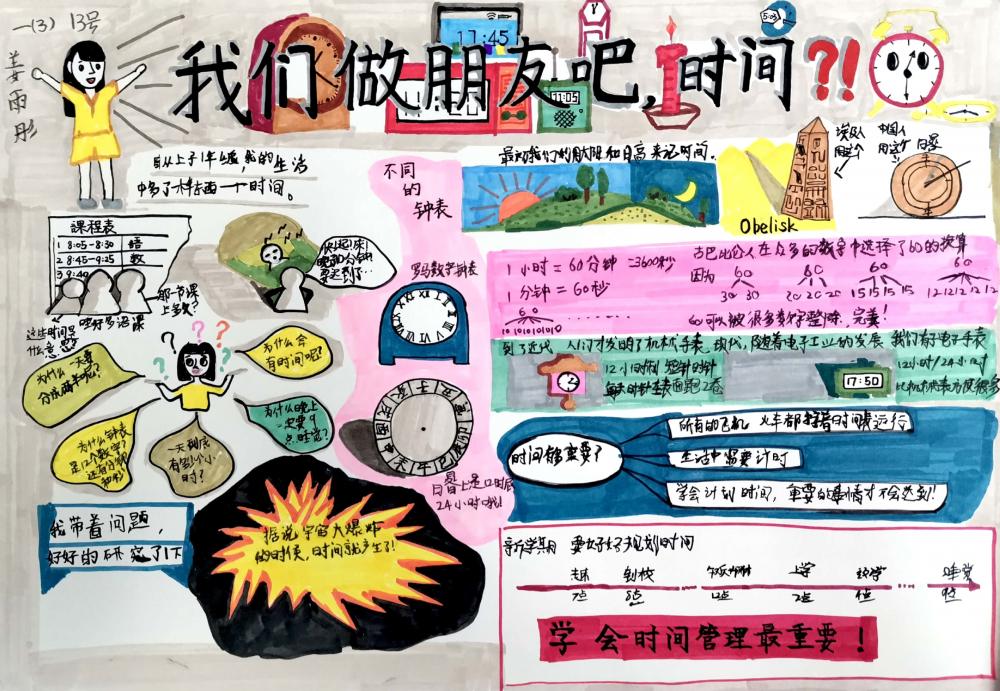 一(3) 13号
姜雨彤
我们做朋友吧,时间?!
17:45
11:05
5:03
8
自从上了1年级,我的生活
中多了一样东西——时间。
课程表
1 8:05-8:30 语
2 8:45-9:25 数
3 9:40
那一节课
上多久?
快起来!
晚10分钟
要迟到了...
这些时间是
什么意思
为什么一天要
分成两半呢?
为什么会
有时间呢?
为什么钟表
是12个数字?
还有分和
秒
一天到底
有多少个小
时?
为什么晚上
一定要9
点睡觉?
我带着问题,
好好的研究了1下
据说宇宙大爆炸
的时候,时间就产生了!
不同
的
钟表
罗马数字钟表
日晷上是12时辰
24小时哦!
最初我们用太阳和日高来记时间.
Obelisk
埃及人
用这个
中国人
用这个
日晷
1小时=60分钟 =3600秒
1分钟=60秒
古巴比伦人在众多的数字中选择了60的换算
因为
60 60 60 60
30 30 20 20 20 15 15 15 15 12 12 12 12 12
10 10 10 10 10 10
.......
60可以被很多数字整除,完美!
到了近代 人们才发明了机械手表,现代,随着电子工业的发展 我们有了电子表
12小时制
17:50
12小时/24小时
比机械表方便很多
时间有多重要?
所有的飞机 火车都按着时间表运行
生活中需要计时
学会计划时间,重要的事情才不会迟到!
新学期 要好好规划时间
到校 上学 睡觉
7点 8点 12点 2点 4点 9点
学会时间管理最重要!